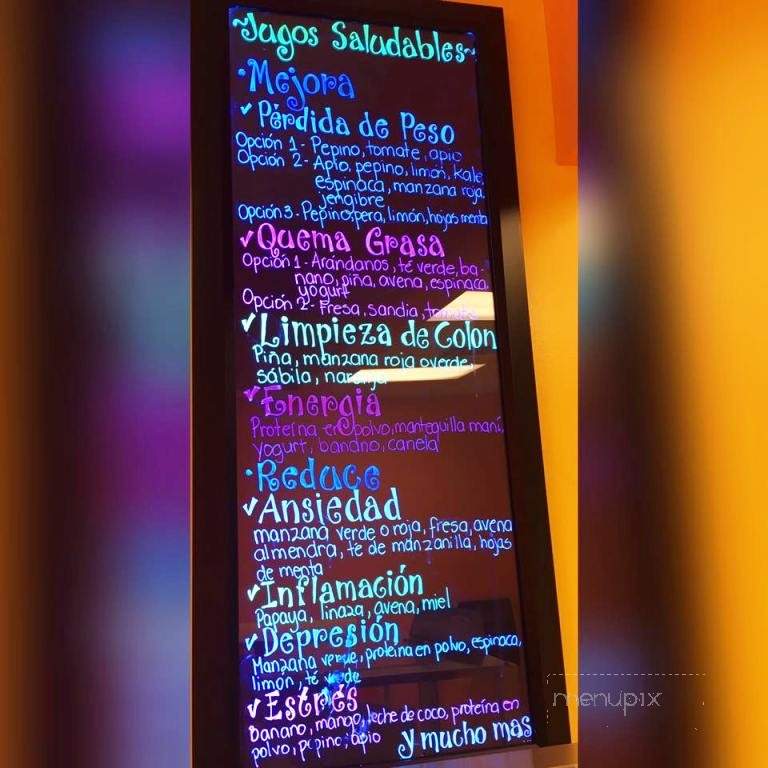 ~Jugos Saludables~
·Mejora
✓ Pérdida de Peso
Opción 1- Pepino, tomate, apio
Opción 2- Apio, pepino, limón, kale,
espinaca, manzana roja,
jengibre
Opción 3- Pepino, pera, limón, hojas menta
✓ Quema Grasa
Opción 1- Arándanos, té verde, ba-
nano, piña, avena, espinaca,
yogurt
Opción 2- Fresa, sandia, tomate
✓ Limpieza de Colon
Piña, manzana roja o verde,
sábila, naranja
✓ Energia
Proteína en polvo, mantequilla maní,
yogurt, banano, canela
·Reduce
✓ Ansiedad
manzana verde o roja, fresa, avena
almendra, té de manzanilla, hojas
de menta
✓ Inflamación
Papaya, linaza, avena, miel
✓ Depresión
Manzana verde, proteína en polvo, espinaca,
limón, té verde
✓ Estrés
banano, mango, leche de coco, proteína en
polvo, pepino, apio
y mucho mas
menupix